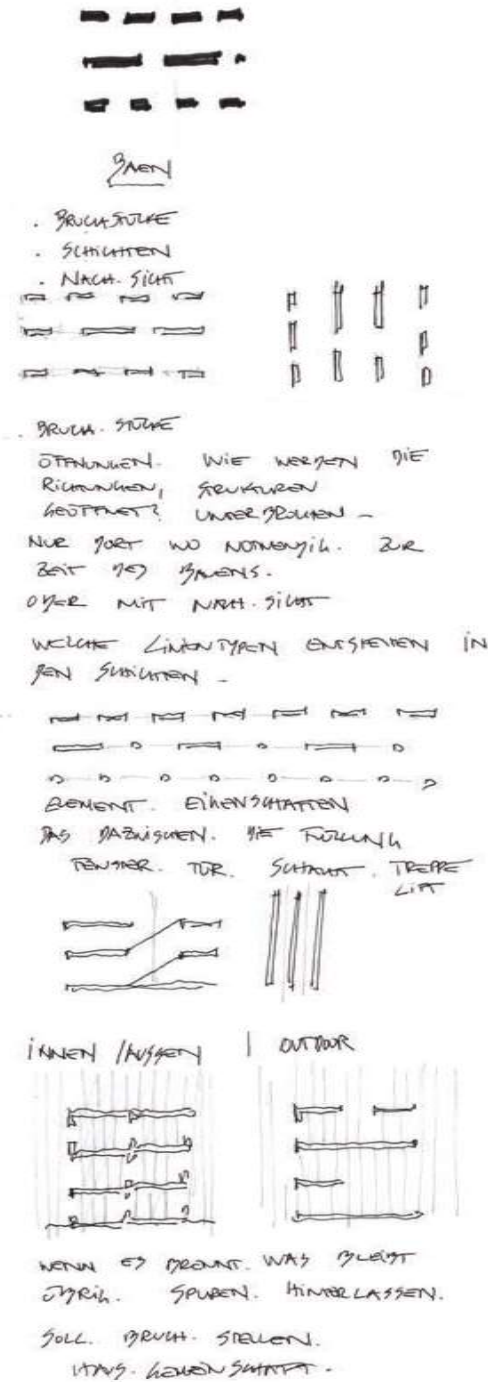 BAEN
. BRUCHSTÜCKE
. SCHICHTEN
. NACH. SICHT
. BRUCH. STÜCKE
ÖFFNUNGEN. WIE WERDEN DIE
RICHTUNGEN, STRUKTUREN
GEÖFFNET? UNTERBROCHEN –
NUR DORT WO NOTWENDIG. ZUR
ZEIT DES BAUENS.
ODER MIT NACH. SICHT
WELCHE LINIENTYPEN ENTSTEHEN IN
DEN SCHICHTEN –
ELEMENT. EIGENSCHAFTEN
DAS DAZWISCHEN. DIE FÜLLUNG
FENSTER. TÜR. SCHACHT. TREPPE
LIFT
INNEN / AUSSEN | OUTDOOR
WENN ES BRENNT. WAS BLEIBT
ÜBRIG. SPUREN. HINTERLASSEN.
SOLL. BRUCH. STELLEN.
HAUS. GEMEINSCHAFT.